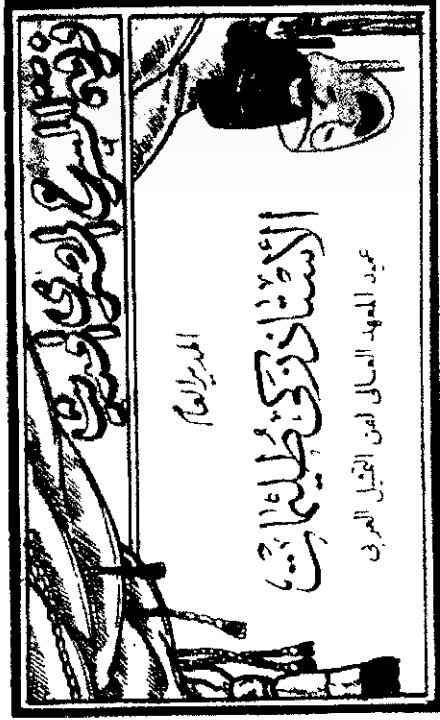 فرقة المسرح المصري الحديث
المدير العام
الأستاذ زكي طليمات
عميد المعهد العالى لفن التمثيل العربى